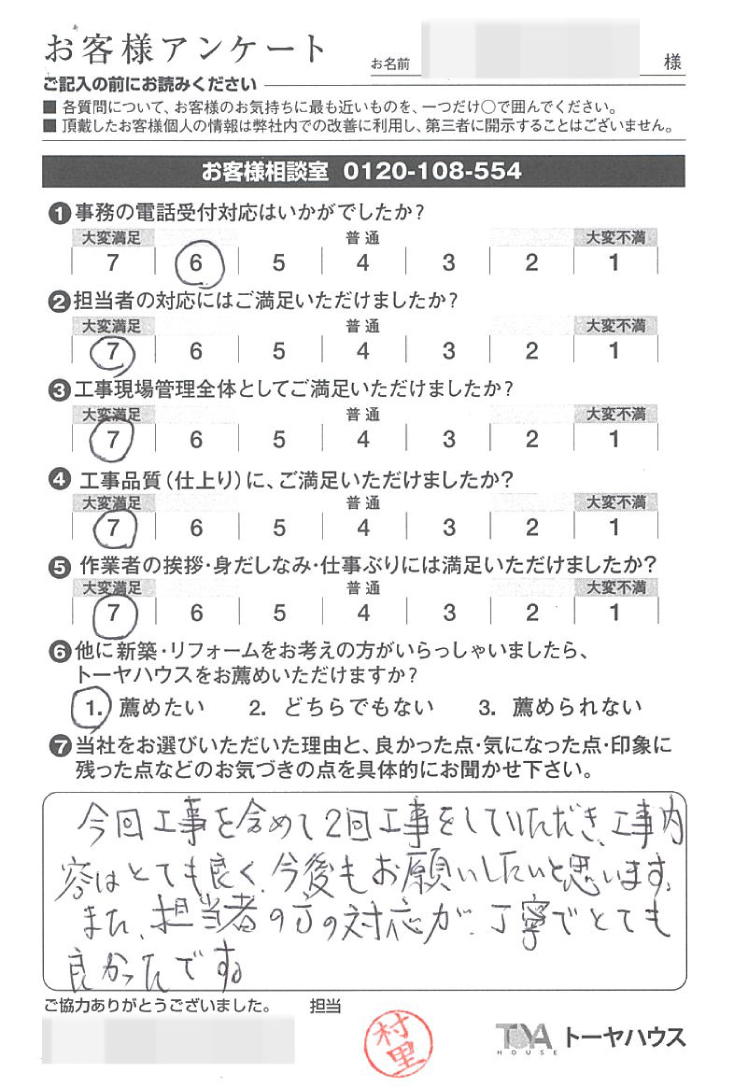 お客様アンケート
お名前 様
ご記入の前にお読みください
■ 各質問について、お客様のお気持ちに最も近いものを、一つだけ○で囲んでください。
■ 頂戴したお客様個人の情報は弊社内での改善に利用し、第三者に開示することはございません。
お客様相談室 0120-108-554
❶事務の電話受付対応はいかがでしたか?
大変満足 普通 大変不満
7 6 5 4 3 2 1
❷担当者の対応にはご満足いただけましたか?
大変満足 普通 大変不満
7 6 5 4 3 2 1
❸工事現場管理全体としてご満足いただけましたか?
大変満足 普通 大変不満
7 6 5 4 3 2 1
❹工事品質(仕上り)に、ご満足いただけましたか?
大変満足 普通 大変不満
7 6 5 4 3 2 1
❺作業者の挨拶・身だしなみ・仕事ぶりには満足いただけましたか?
大変満足 普通 大変不満
7 6 5 4 3 2 1
❻他に新築・リフォームをお考えの方がいらっしゃいましたら、
トーヤハウスをお薦めいただけますか?
1. 薦めたい 2. どちらでもない 3. 薦められない
❼当社をお選びいただいた理由と、良かった点・気になった点・印象に
残った点などのお気づきの点を具体的にお聞かせ下さい。
今回工事を含めて2回工事をしていただき、工事内
容はとても良く、今後もお願いしたいと思います。
また、担当者の方の対応が、丁寧でとても
良かったです。
ご協力ありがとうございました。 担当
村里
TOYA HOUSE トーヤハウス